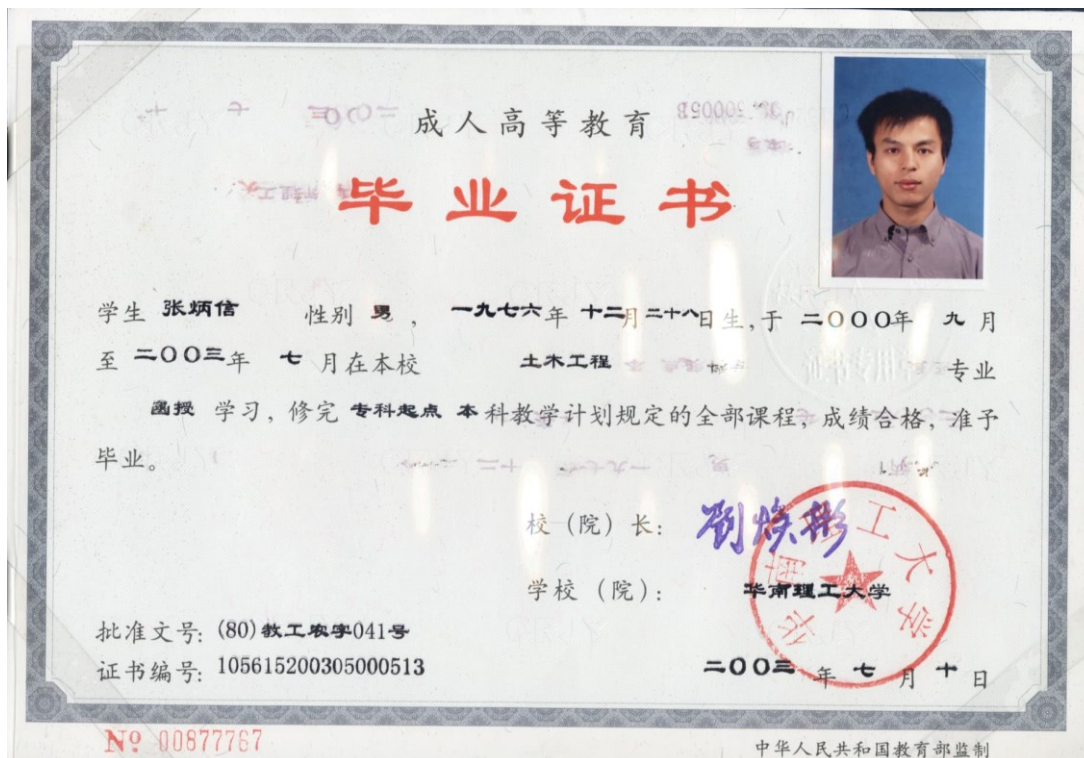 成人高等教育
毕业证书
学生 张炳信 性别 男 , 一九七六年 十二月 二十八日生,于 二000年 九 月
至 二00三年 七 月在本校 土木工程 专业
函授 学习, 修完 专科起点 本 科教学计划规定的全部课程, 成绩合格, 准予
毕业。
校(院)长: 劉焕彬
学校(院): 华南理工大学
华南理工大学
批准文号: (80)教工农字041号
证书编号: 105615200305000513
二00三 年 七 月 十 日
№ 00877767
中华人民共和国教育部监制